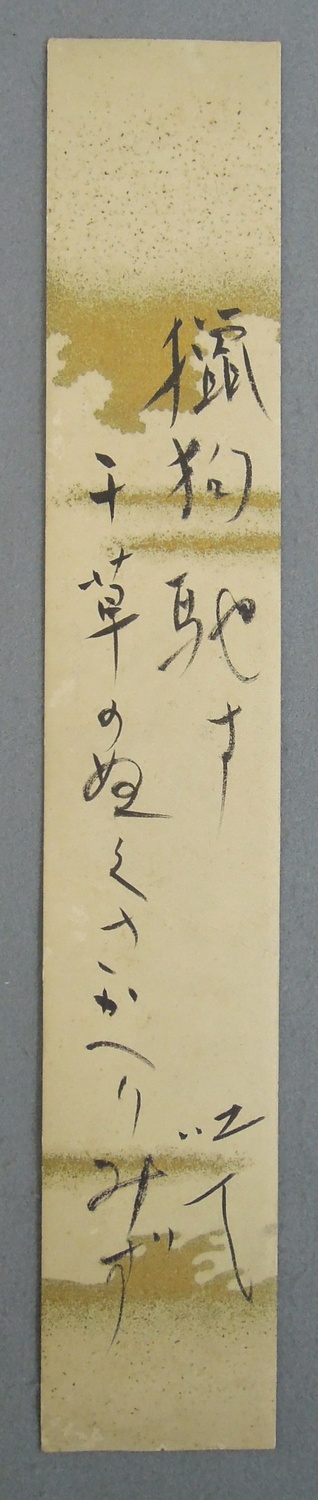 獵狗馳す
干草のぬくさかへりみず